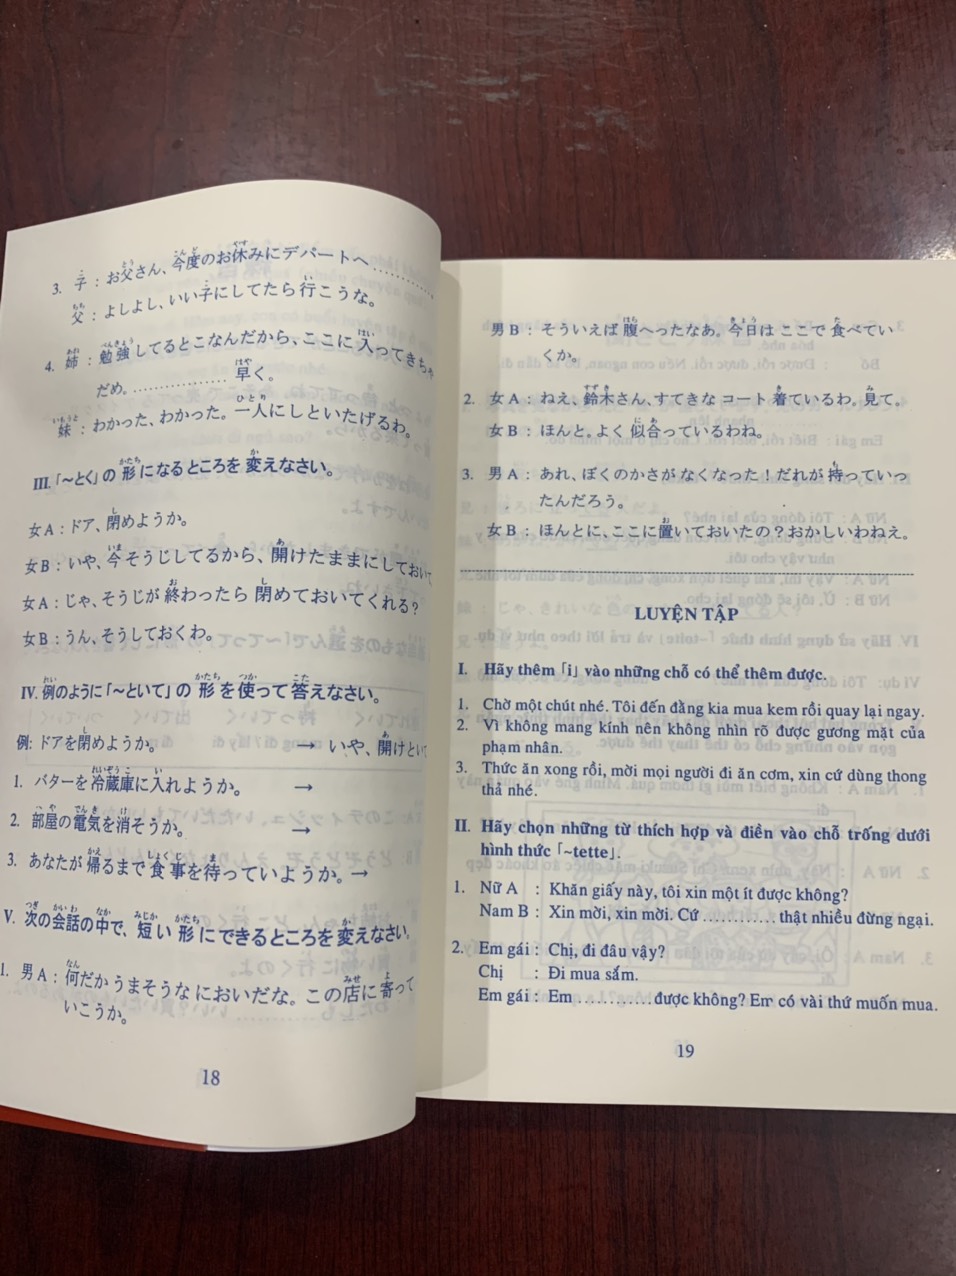 3. 子 : お父さん、今度のお休みにデパートへ..........
父 : よしよし、いい子にしてたら行こうな。
4. 姉 : 勉強してるとこなんだから、ここに入ってきちゃ
だめ。............... 早く。
妹 : わかった、わかった。一人にしといたげるわ。
III. 「～とく」の形になるところを変えなさい。
女A : ドア、閉めようか。
女B : いや、今そうじしてるから、開けたままにしておいて
女A : じゃ、そうじが終わったら閉めておいてくれる?
女B : うん、そうしておくわ。
IV. 例のように「～といて」の形を使って答えなさい。
例: ドアを閉めようか。 → いや、開けといて
1. バターを冷蔵庫に入れようか。 →
2. 部屋の電気を消そうか。 →
3. あなたが帰るまで食事を待っていようか。→
V. 次の会話の中で、短い形にできるところを変えなさい。
1. 男A : 何だかうまそうなにおいだな。この店に寄って
いこうか。
18
男B : そういえば腹へったなあ。今日はここで食べてい
くか。
2. 女A : ねえ、鈴木さん、すてきなコート着ているわ。見て。
女B : ほんと。よく似合っているわね。
3. 男A : あれ、ぼくのかさがなくなった！だれが持っていっ
たんだろう。
女B : ほんとに、ここに置いておいたの？おかしいわねえ。
LUYỆN TẬP
I. Hãy thêm「i」vào những chỗ có thể thêm được.
1. Chờ một chút nhé. Tôi đến đằng kia mua kem rồi quay lại ngay.
2. Vì không mang kính nên không nhìn rõ được gương mặt của
phạm nhân.
3. Thức ăn xong rồi, mời mọi người đi ăn cơm, xin cứ dùng thong
thả nhé.
II. Hãy chọn những từ thích hợp và điền vào chỗ trống dưới
hình thức「~tette」.
1. Nữ A : Khăn giấy này, tôi xin một ít được không?
Nam B : Xin mời, xin mời. Cứ ............ thật nhiều đừng ngại.
2. Em gái : Chị, đi đâu vậy?
Chị : Đi mua sắm.
Em gái : Em ............ được không? Em có vài thứ muốn mua.
19